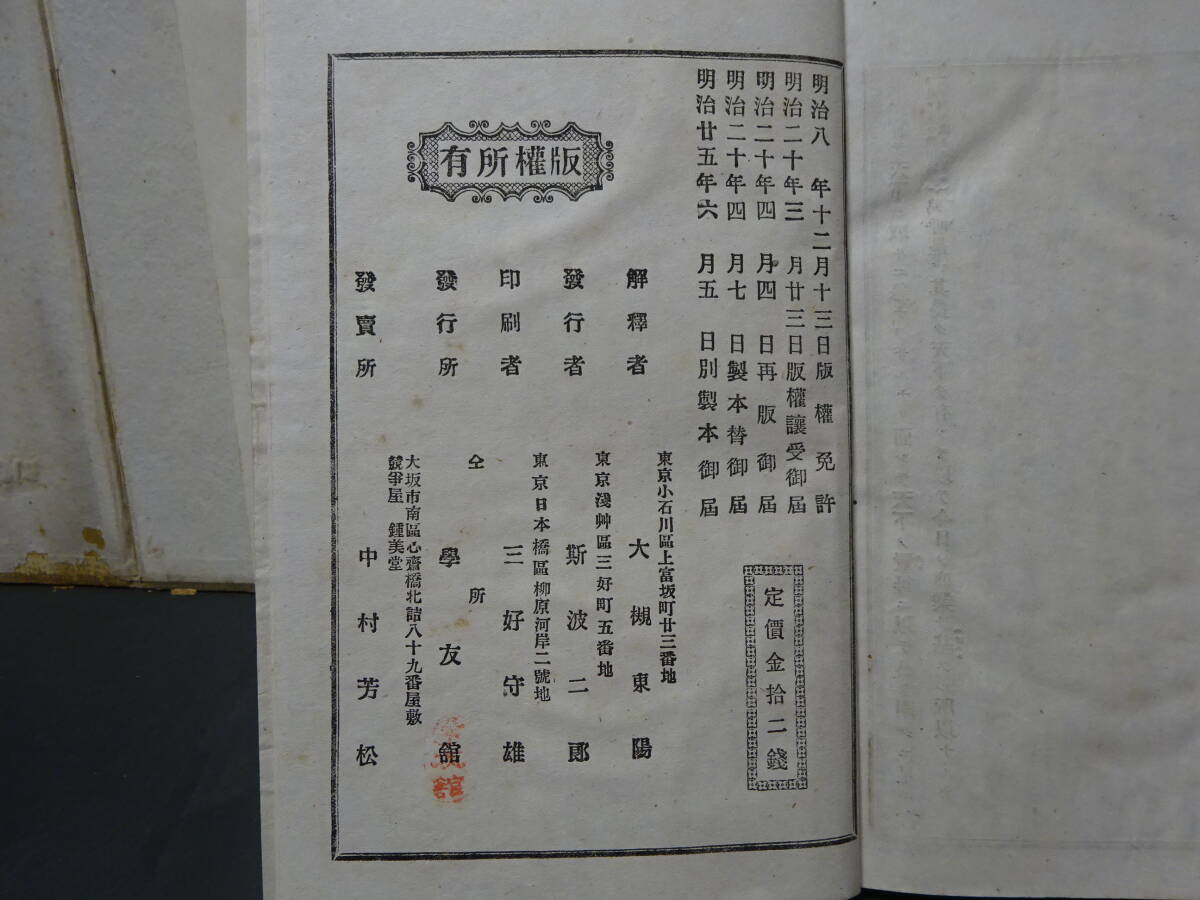 明治八年十二月十三日版權免許
明治二十年三月廿三日版權讓受御屆
明治二十年四月四日再版御屆
明治二十年四月七日製本替御屆
明治廿五年六月五日別製本御屆
定價金拾二錢
版權所有
東京小石川區上富坂町廿三番地
解釋者 大槻東陽
東京淺艸區三好町五番地
發行者 斯波二郎
東京日本橋區柳原河岸二號地
印刷者 三好守雄
仝所
發行所 學友館
大坂市南區心齋橋北詰八十九番屋敷
競爭屋 鍾美堂
發賣所 中村芳松